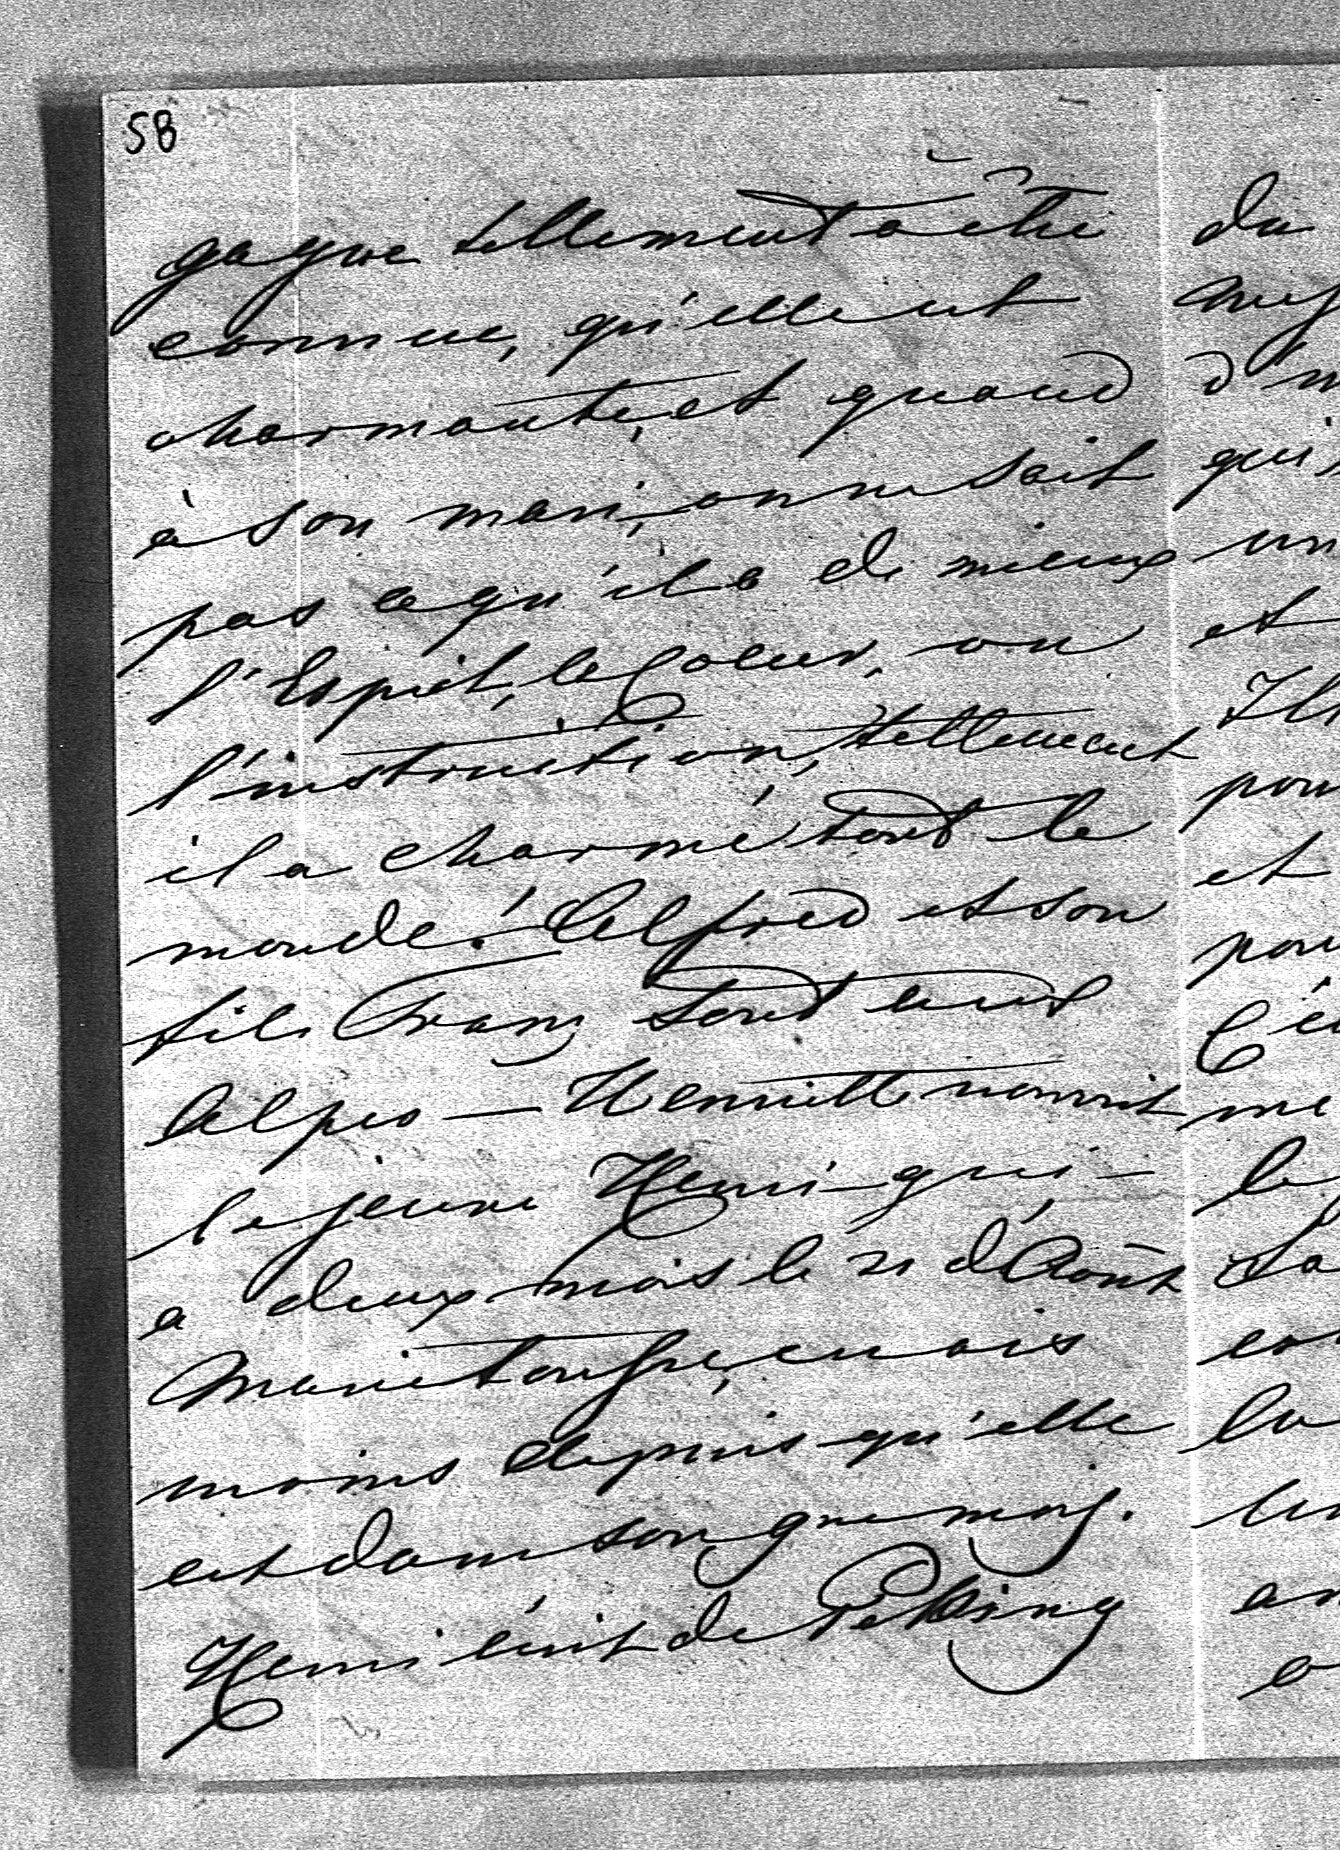 58
gagne tellement à être
connue, qu'elle est
charmante, et quand
à son mari, on ne sait
pas ce qu'il a de mieux
l'Esprit, le Coeur, ou
l'instruction, tellement
il a charmé tout le
monde! Alfred et son
fils Franz sont aux
Alpes — Henriette nourrit
le jeune Henri qui
a deux mois le 21 d'Août
Marie tousse, mais
moins depuis qu'elle
est dans son
Henri écrit de Péking
du
qui
un
et
Il
pou
et
pou
me
le
la